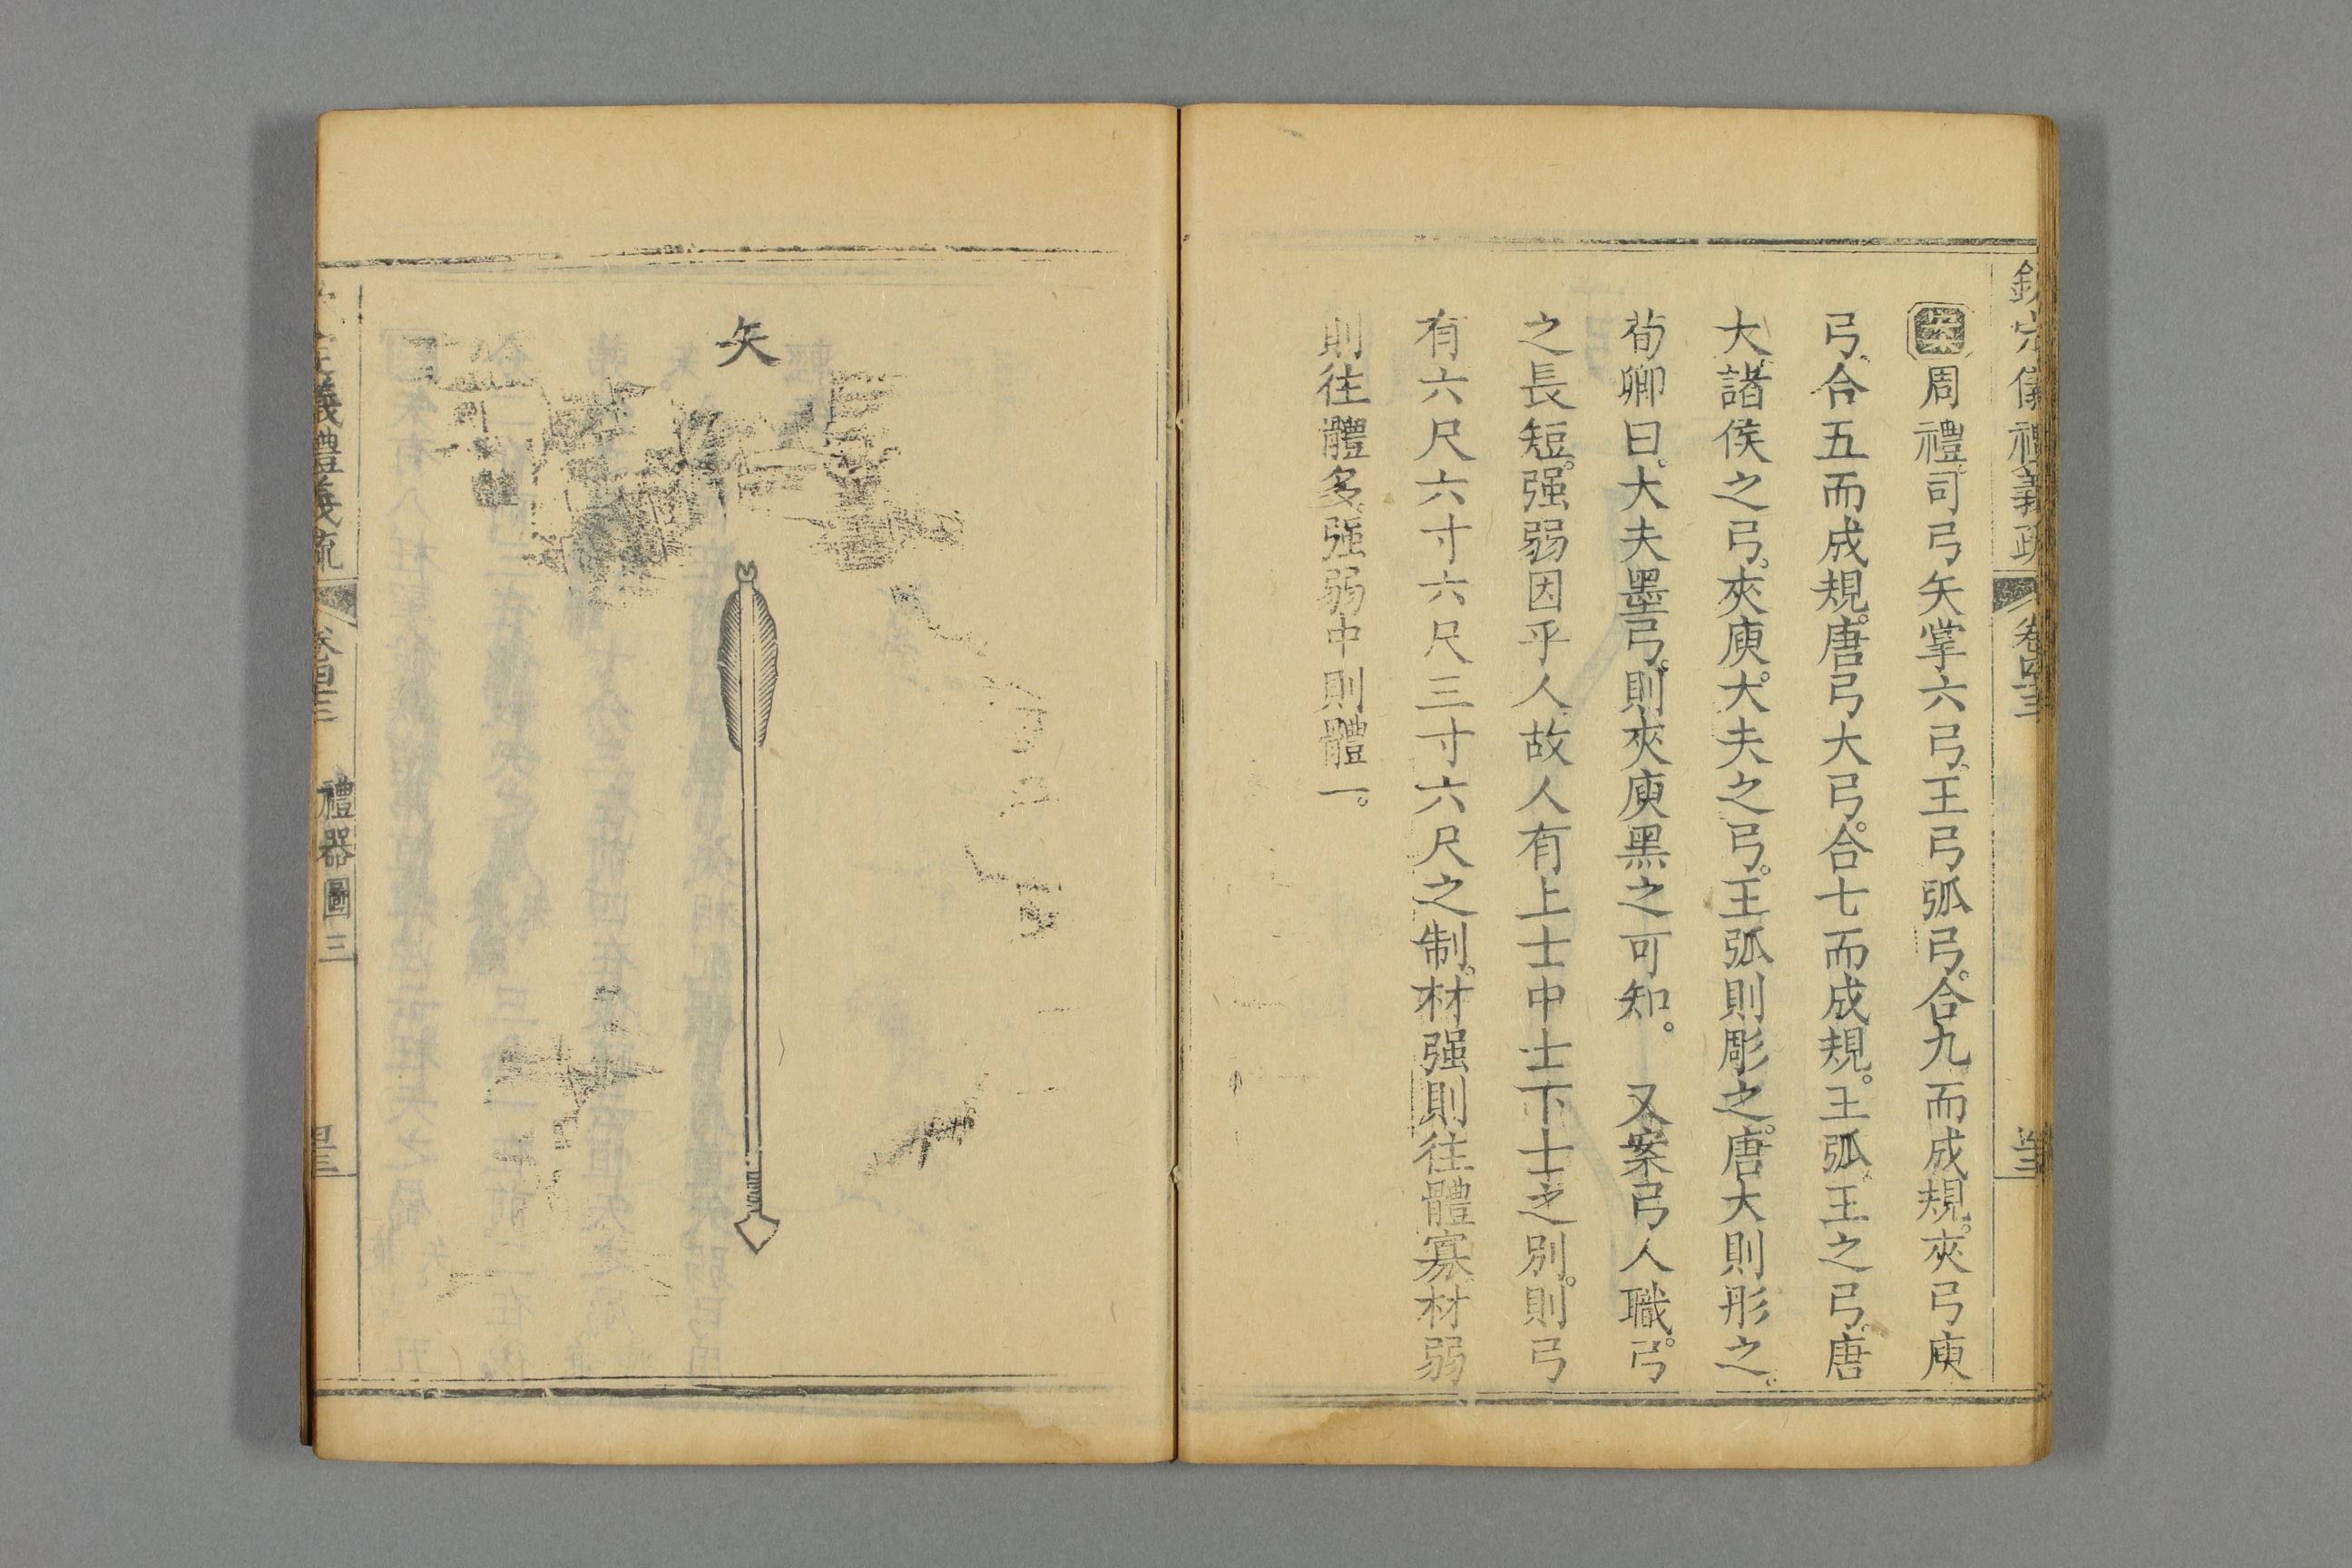 欽定儀禮義疏 卷四十三
案周禮司弓矢掌六弓王弓弧弓。合九而成規。夾弓庾
弓、合五而成規。唐弓大弓。合七而成規。王弧、王之弓。唐
大、諸侯之弓。夾庾。大夫之弓。王弧則彫之。唐大則彤之。
荀卿曰。大夫墨弓。則夾庾黑之可知。 又案弓人職。弓
之長短。强弱因乎人故人有上士中士下士之別。則弓
有六尺六寸六尺三寸六尺之制。材强則往體寡材弱
則往體多。强弱中則體一。
矢
儀禮義疏 卷四十三 禮器圖三